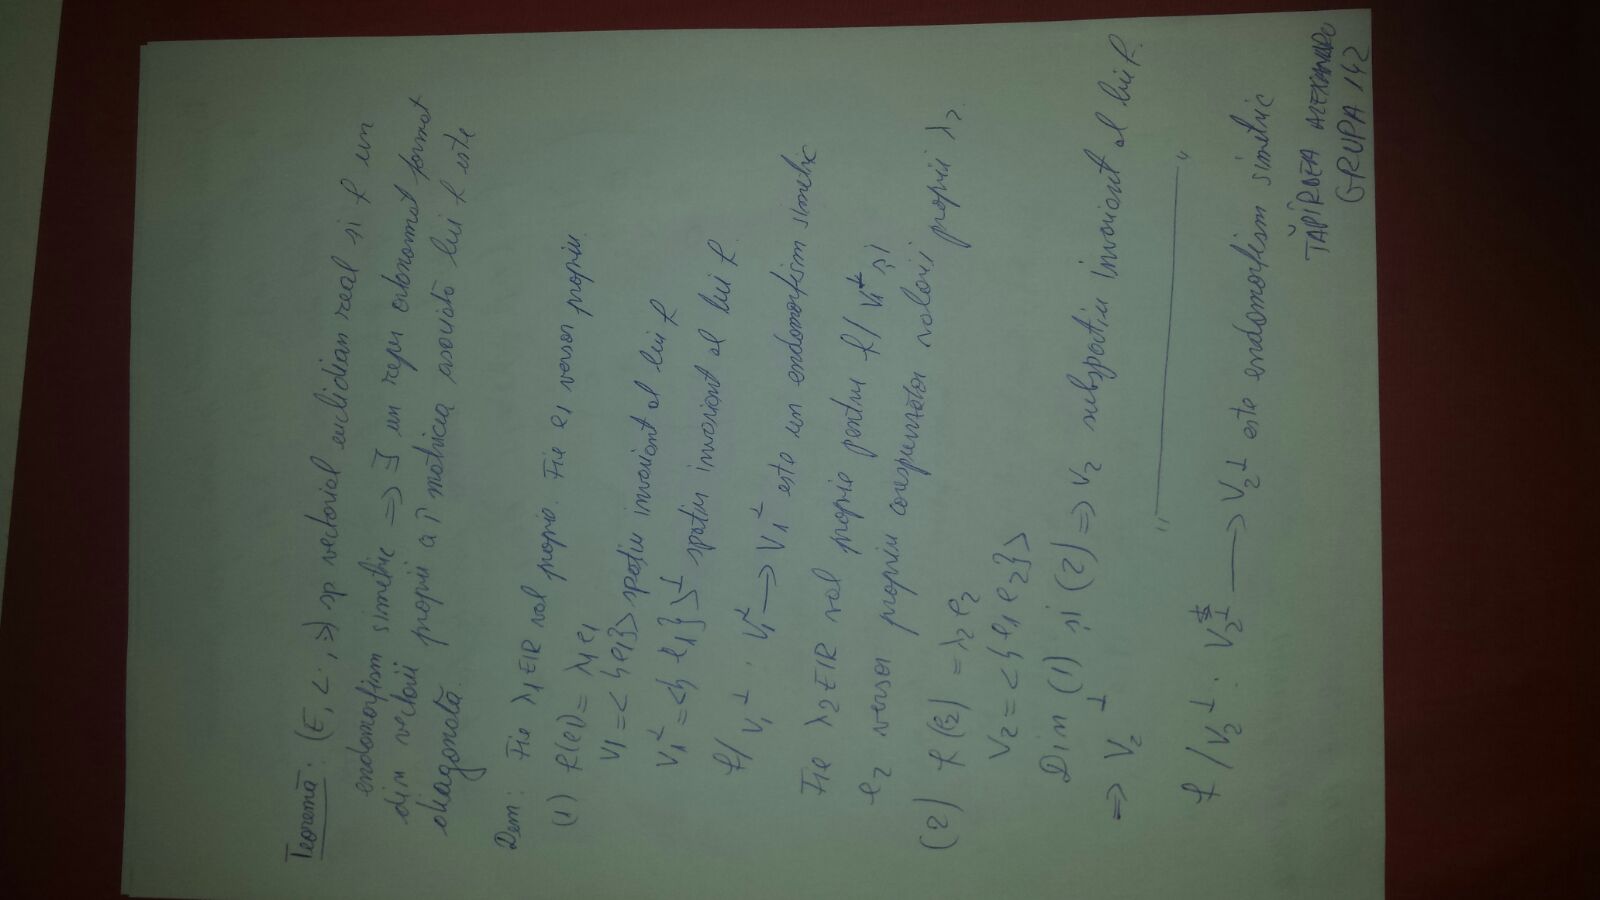 Teoremă: (E, <·,·>) sp vectorial euclidian real și f un
endomorfism simetric => ∃ un reper ortonormat format
din vectori proprii aî matricea asociată lui f este
diagonală.
Dem: Fie λ1∈IR val proprie. Fie e1 versor propriu.
(1) f(e1) = λ1e1
V1 = <{e1}> spațiu invariant al lui f
V1⊥ = <{e1}>⊥ spațiu invariant al lui f.
f/V1⊥ : V1⊥ → V1⊥ este un endomorfism simetric
Fie λ2∈IR val proprie pentru f/V1⊥ și
e2 versor propriu corespunzător valorii proprii λ2.
(2) f(e2) = λ2e2
V2 = <{e1 e2}>
Din (1) și (2) => V2 subspațiu invariant al lui f.
=> V2⊥ " ——— "
f/V2⊥ : V2⊥ → V2⊥ este endomorfism simetric
TĂPÎRDEA
GRUPA 142